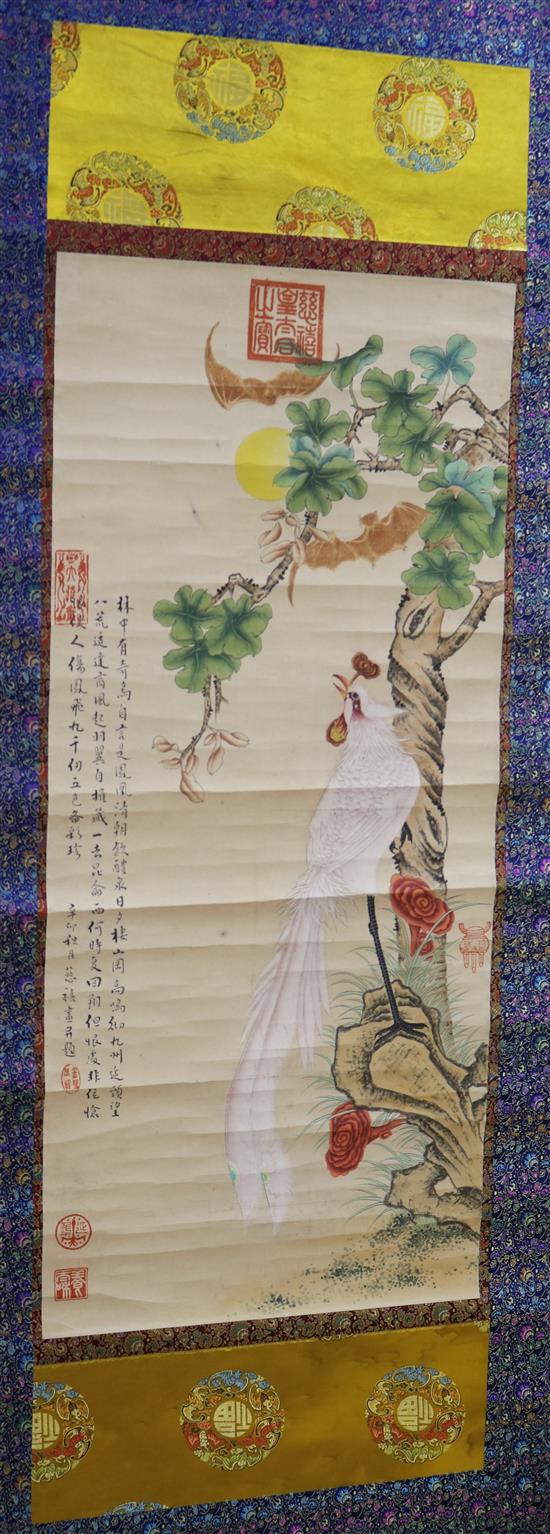 慈禧
皇太后
之寶
林中有奇鳥自言是鳳凰清朝飲醴泉日夕棲山岡高鳴徹九州延頸望
八荒適逢商風起羽翼自摧藏一去昆侖西何時復回翔但恨處非位愴
人傷鳳飛九千仞五色備彩珍
辛卯秋月慈禧畫并題